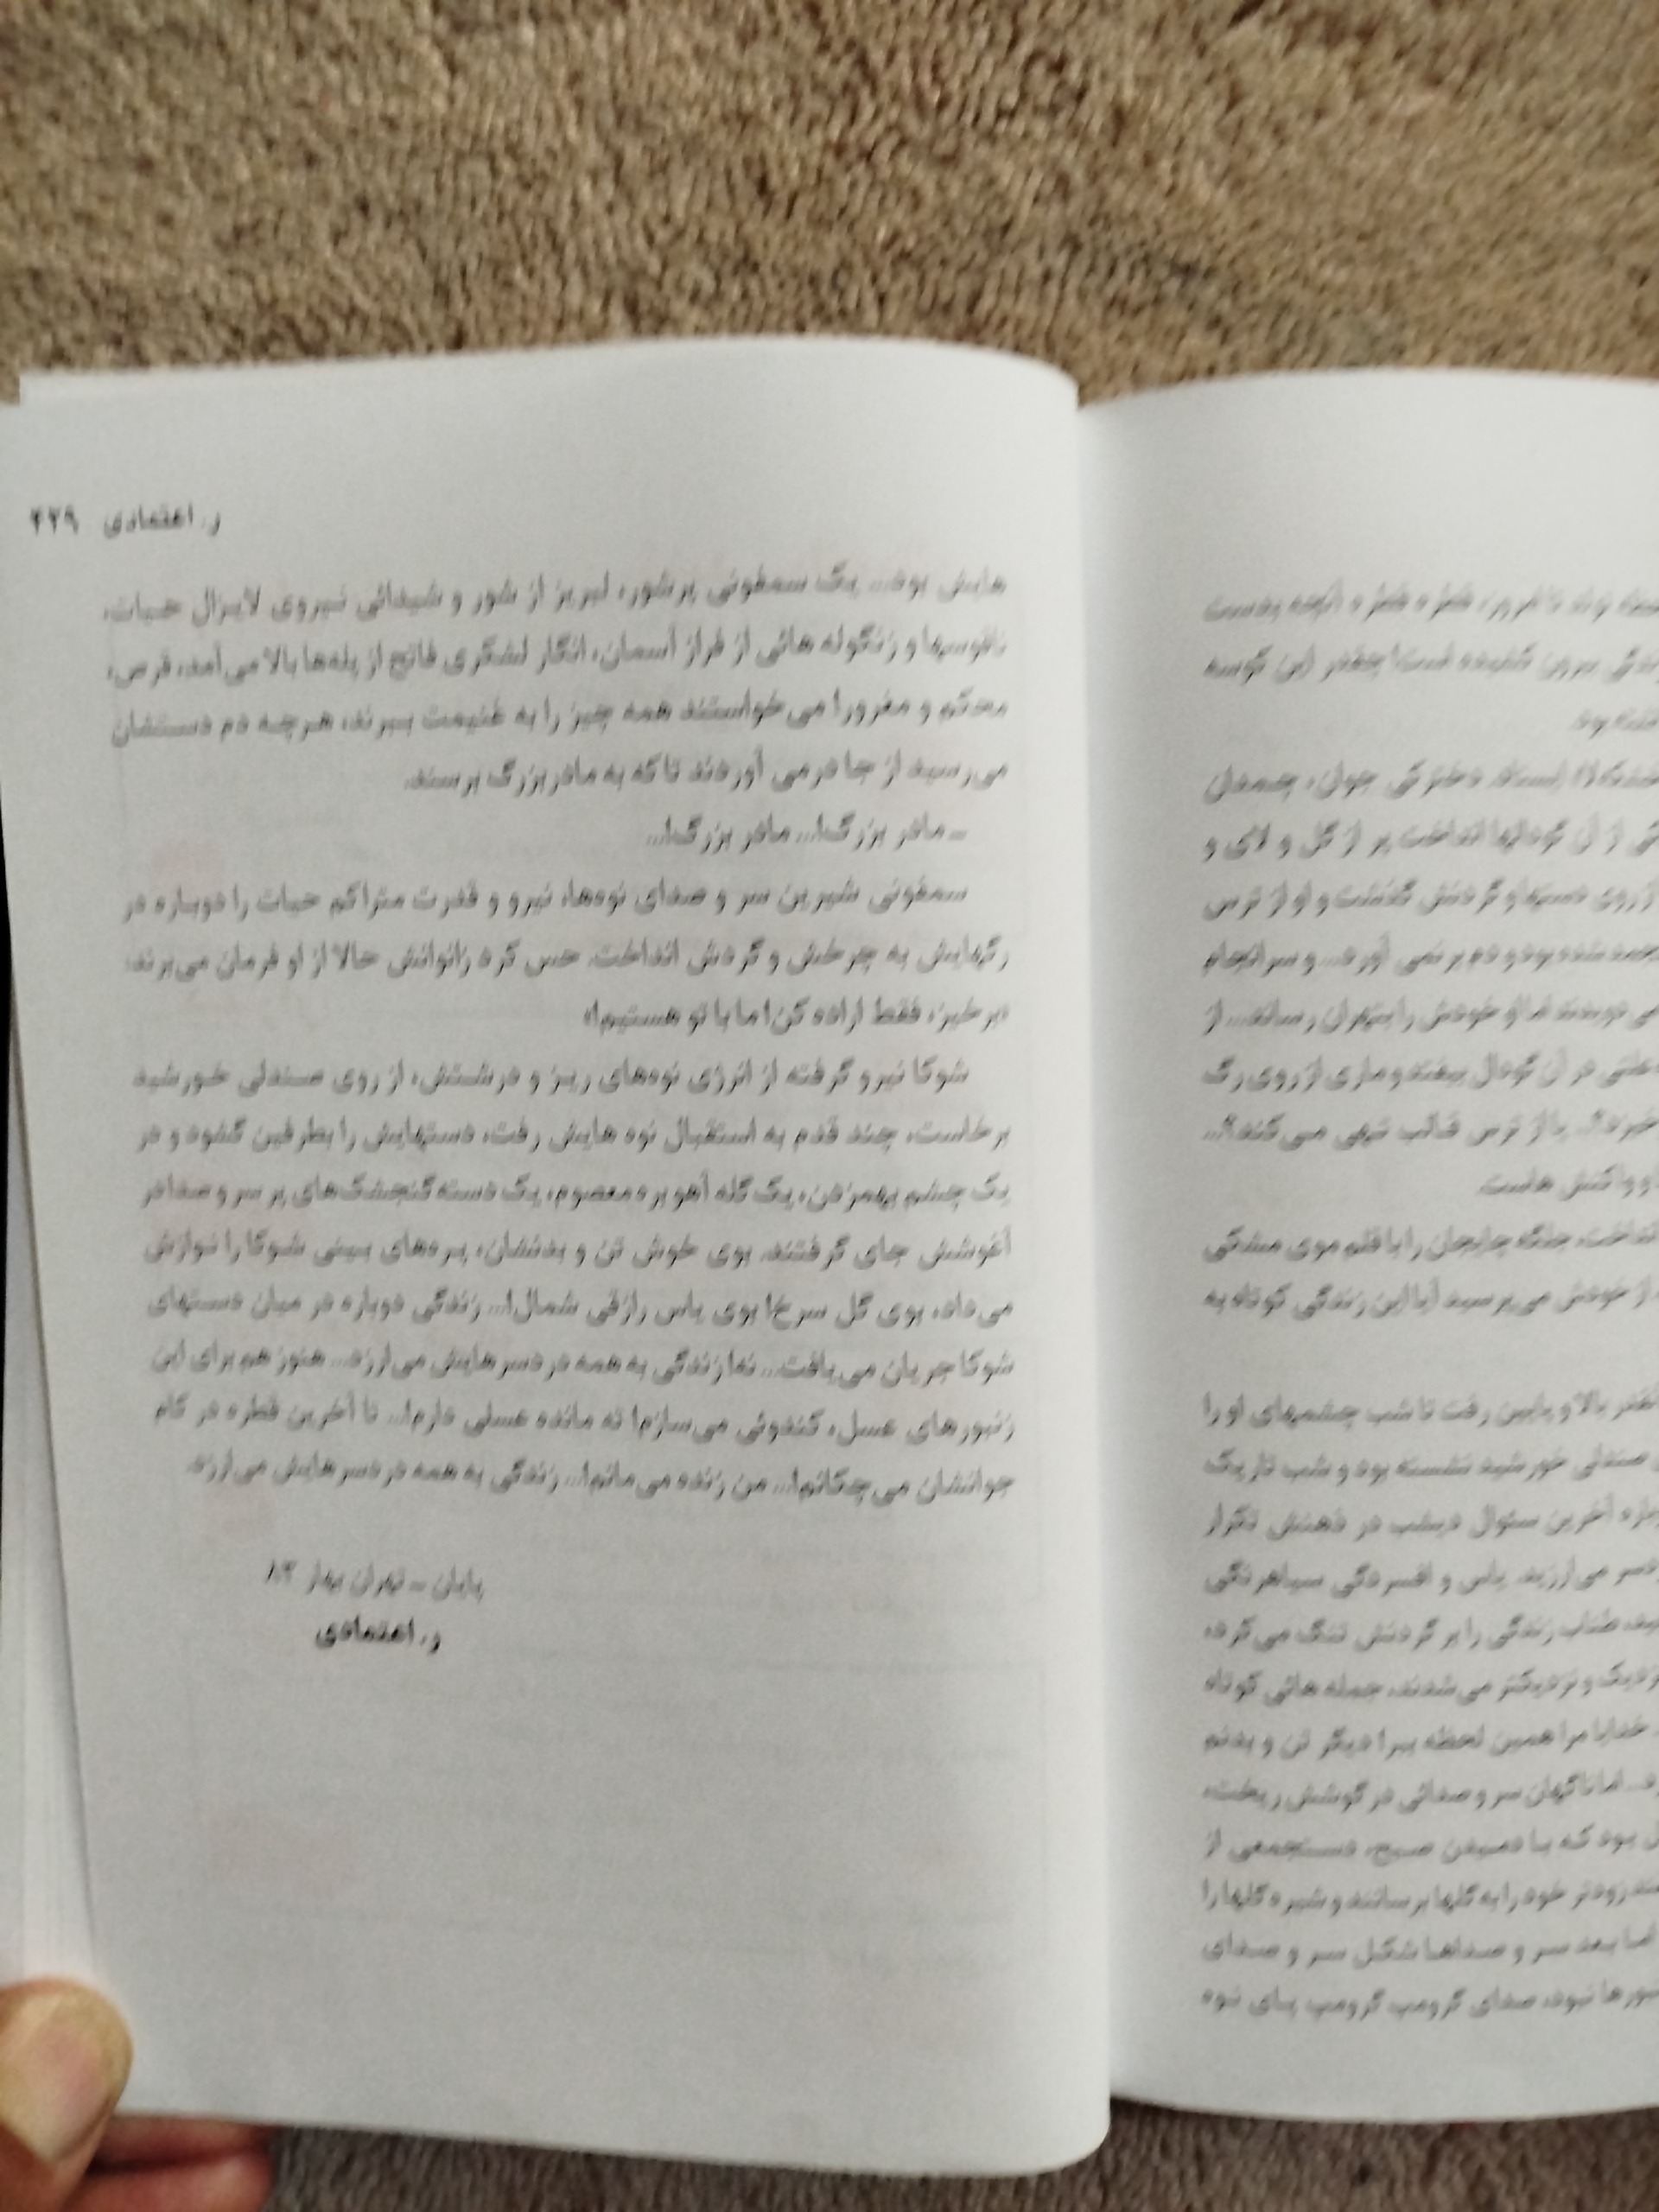 ر. اعتمادی ۴۲۹
هایش بود... یک سمفونی پرشور، لبریز از شور و شیدائی نیروی لایزال حیات،
ناقوسها و زنگوله هائی از فراز آسمان، انگار لشگری فاتح از پله‌ها بالا می‌آمد، قرص،
محکم و مغرور! می‌خواستند همه چیز را به غنیمت ببرند، هرچه دم دستشان
می‌رسید از جا درمی آوردند تا که به مادربزرگ برسند.
ـ مادر بزرگ!... مادر بزرگ!...
سمفونی شیرین سر و صدای نوه‌ها، نیرو و قدرت متراکم حیات را دوباره در
رگهایش به چرخش و گردش انداخت. حس کرد زانوانش حالا از او فرمان می‌برند:
«برخیز، فقط اراده کن! ما با تو هستیم!»
شوکا نیرو گرفته از انرژی نوه‌های ریز و درشتش، از روی صندلی خورشید
برخاست، چند قدم به استقبال نوه هایش رفت، دستهایش را بطرفین گشود و در
یک چشم بهم زدن، یک گله آهو بره معصوم، یک دسته گنجشک‌های پر سر و صدا در
آغوشش جای گرفتند. بوی خوش تن و بدنشان، پره‌های بینی شوکا را نوازش
می‌داد، بوی گل سرخ! بوی یاس رازقی شمال!... زندگی دوباره در میان دستهای
شوکا جریان می‌یافت... نه! زندگی به همه دردسرهایش می‌ارزد... هنوز هم برای این
زنبورهای عسل، کندوئی می‌سازم! ته مانده عسلی دارم!... تا آخرین قطره در کام
جوانشان می‌چکانم!... من زنده می‌مانم!... زندگی به همه دردسرهایش می‌ارزد.
پایان ـ تهران بهار ۸۳
ر. اعتمادی
قطره قطره آنچه بدست
زندگی بیرون کشیده است! چقدر این گوسه
بود.
دخترکی جوان، چمدان
از آن گودالها انداخت پر از گل و لای و
گردنش گذشت و او از ترس
شده بود و دم بر نمی آورد... و سرانجام
خودش را بتهران رساند... از
در آن گودال بیفتد و ماری از روی رگ
از ترس قالب تهی می‌کند؟...
واکنش هاست.
را با قلم موی مشکی
از خودش می‌پرسید آیا این زندگی کوتاه به
بالا و پایین رفت تا شب چشمهای او را
صندلی خورشید نشسته بود و شب تاریک
آخرین سئوال دیشب در ذهنش تکرار
می‌ارزید. یاس و افسردگی سیاهرنگی
طناب زندگی را بر گردنش تنگ می‌کرد،
نزدیک و نزدیکتر می‌شدند، جمله هائی کوتاه
خدایا مرا همین لحظه ببر! دیگر تن و بدنم
اما ناگهان سر و صدائی در گوشش ریخت،
بود که با دمیدن صبح، دستجمعی از
زودتر خود را به گلها برسانند و شیره گلها را
اما بعد سر و صداها شکل سر و صدای
نبود، صدای گرومب گرومب پای نوه